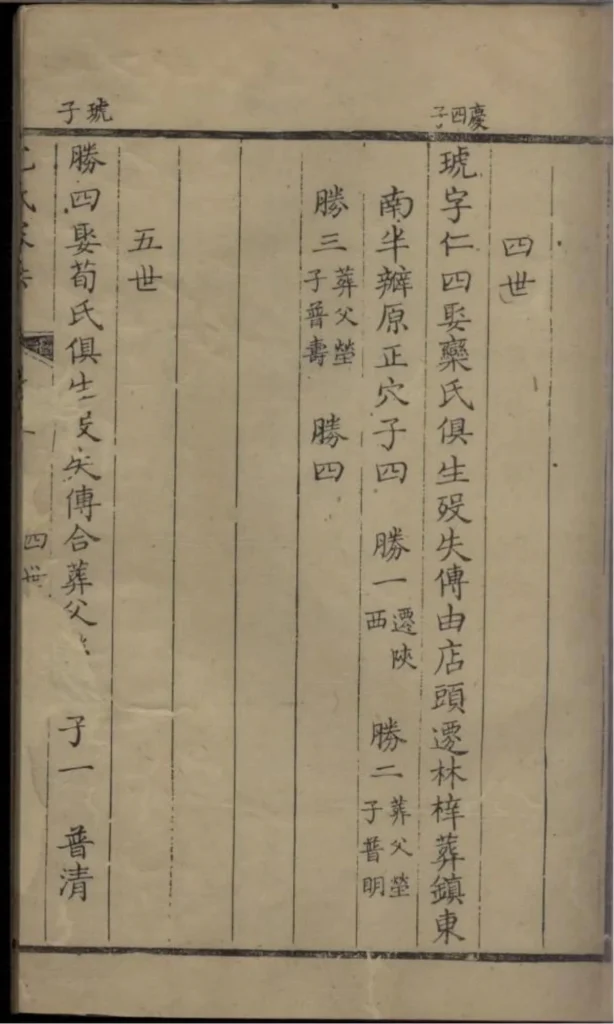 四世
慶四子
琥字仁四娶欒氏俱生歿失傳由店頭遷林梓葬鎮東
南半辦原正穴子四 勝一遷陝西 勝二葬父塋子普明
勝三葬父塋子普壽 勝四
五世
琥子
勝四娶荀氏俱生歿失傳合葬父 子一 普清
氏
四世